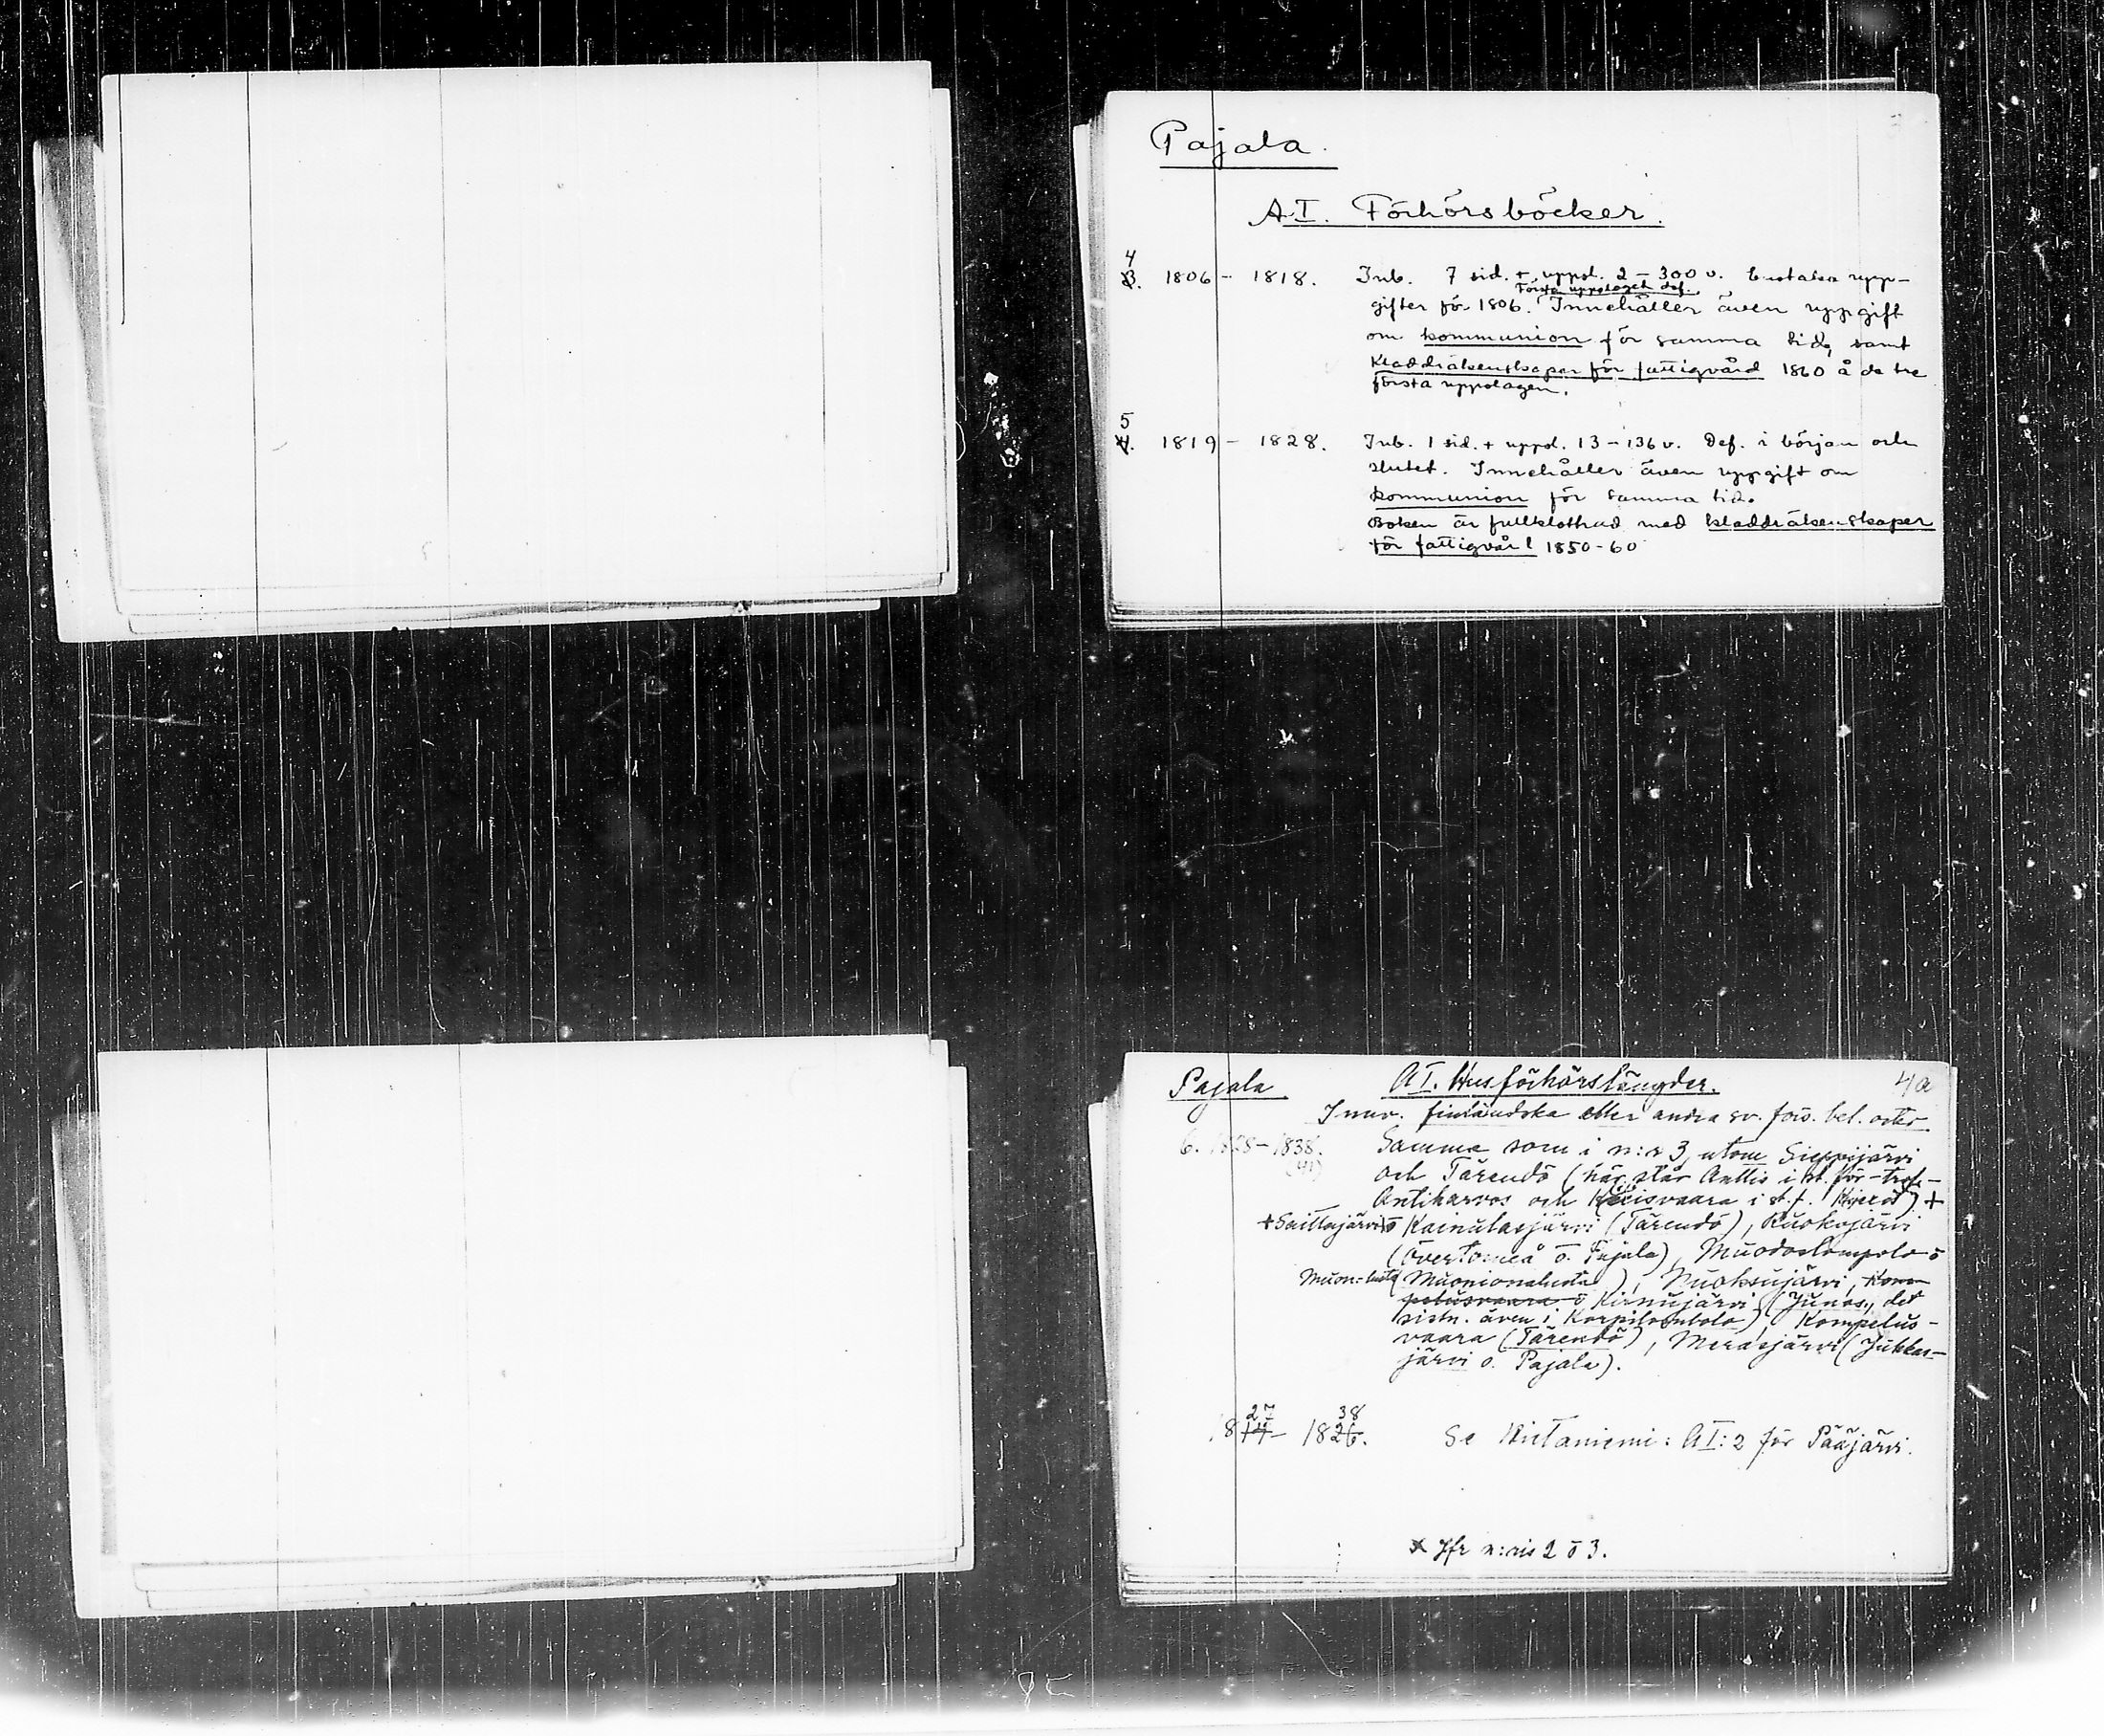 Pajala.
A I. Förhörsböcker.
4
3. 1806 – 1818. Inb. 7 sid. + uppsl. 2 – 300 v. Enstaka upp-
Första uppslaget def.
gifter för 1806. Innehåller även uppgift
om kommunion för samma tid, samt
Kladdräkenskaper för fattigvård 1860 å de tre
första uppslagen.
5
4. 1819 – 1828. Inb. 1 sid. + uppsl. 13 – 136 v. Def. i början och
slutet. Innehåller även uppgift om
kommunion för samma tid.
Boken är fullklottrad med kladdräkenskaper
för fattigvård 1850-60
Pajala A I. Husförhörslängder. 4a
Innv. finländska eller andra sv. förs. bel. orter
6. 1828–1838. Samma som i n:r 3, utom Sieppijärvi
(41)
och Tärendö (här står Anttis i st. för
Antikarvos och i st. f. ) +
+ Saittajärvi o Kainulasjärvi (Tärendö), Ruokojärvi
(Övertorneå o. Pajala), Muodoslompolo o
Muon:lusta (Muonionalusta), Muoksujärvi, Kom-
pelusvaara o Kirnujärvi (Junos., det
sistn. även i Korpilombolo), Kompelus-
vaara (Tärendö), Merasjärvi (Jukkas-
järvi o. Pajala).
27 38
1814 – 1826. Se Hietaniemi: A I: 2 för Pääjärvi.
x Jfr n:ris 2 o 3.